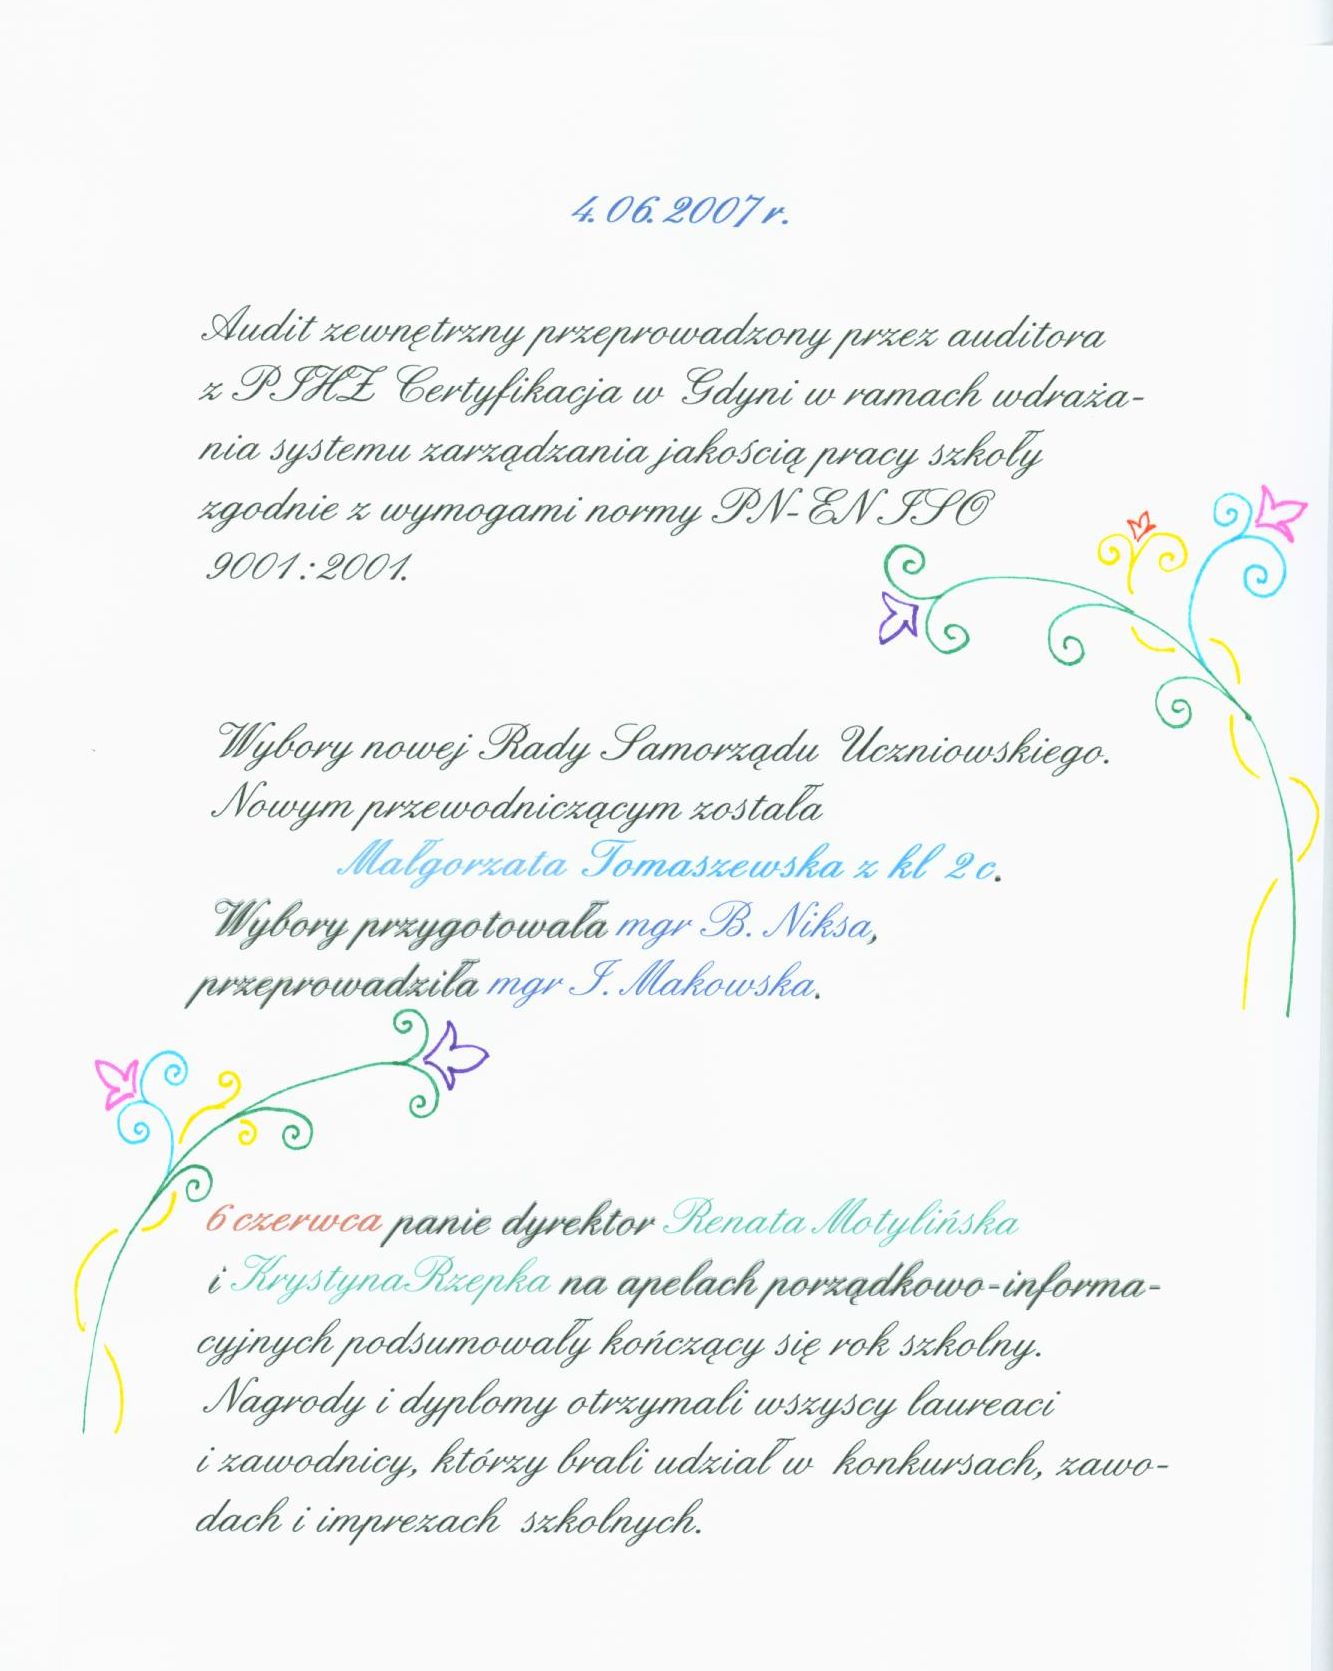 4.06.2007 r.
Audit zewnętrzny przeprowadzony przez auditora
z PIHZ Certyfikacja w Gdyni w ramach wdraża-
nia systemu zarządzania jakością pracy szkoły
zgodnie z wymogami normy PN-EN ISO
9001:2001.
Wybory nowej Rady Samorządu Uczniowskiego.
Nowym przewodniczącym została
Małgorzata Tomaszewska z kl 2c.
Wybory przygotowała mgr B. Niksa,
przeprowadziła mgr I. Makowska.
6 czerwca panie dyrektor Renata Motylińska
i Krystyna Rzepka na apelach porządkowo-informa-
cyjnych podsumowały kończący się rok szkolny.
Nagrody i dyplomy otrzymali wszyscy laureaci
i zawodnicy, którzy brali udział w konkursach, zawo-
dach i imprezach szkolnych.